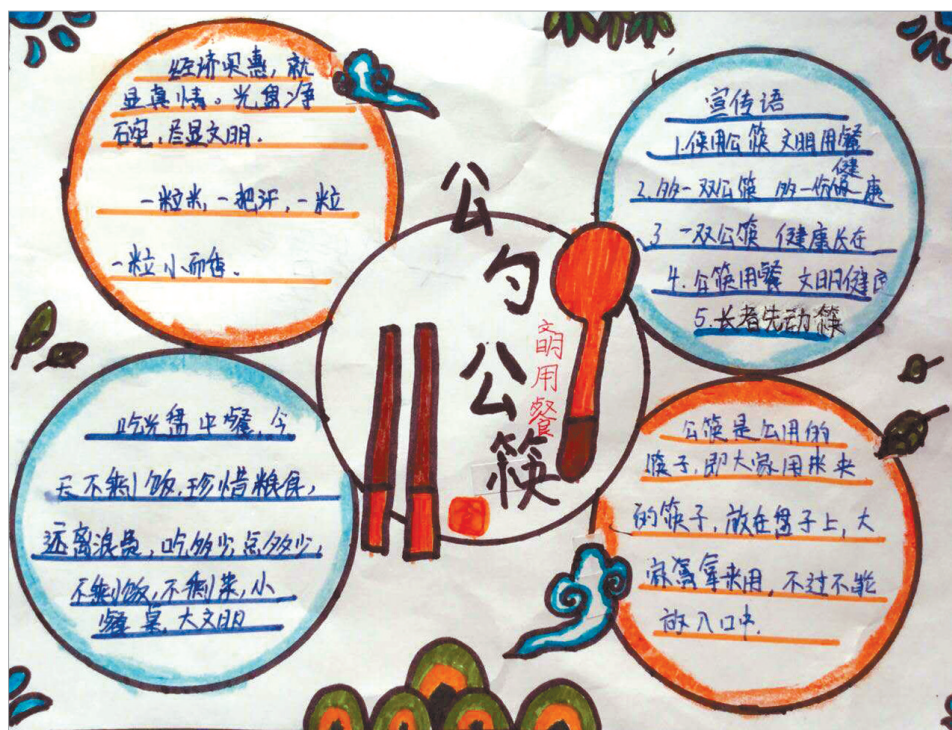 经济实惠，就
显真情。光盘净
碗空，尽显文明.
一粒米，一把汗，一粒
一粒小而
公勺公筷
文明用餐
宣传语
1.使用公筷 文明用餐
2.多一双公筷 多一份健康
3 一双公筷 健康长在
4.公筷用餐 文明健
5.长者先动筷
吃光盘中餐，今
天不剩饭，珍惜粮食，
远离浪费，吃多少点多少，
不剩饭，不剩菜，小
餐桌，大文明
公筷是公用的
筷子，即大家用来夹
的筷子，放在盘子上，大
家拿来用，不过不能
放入口中.